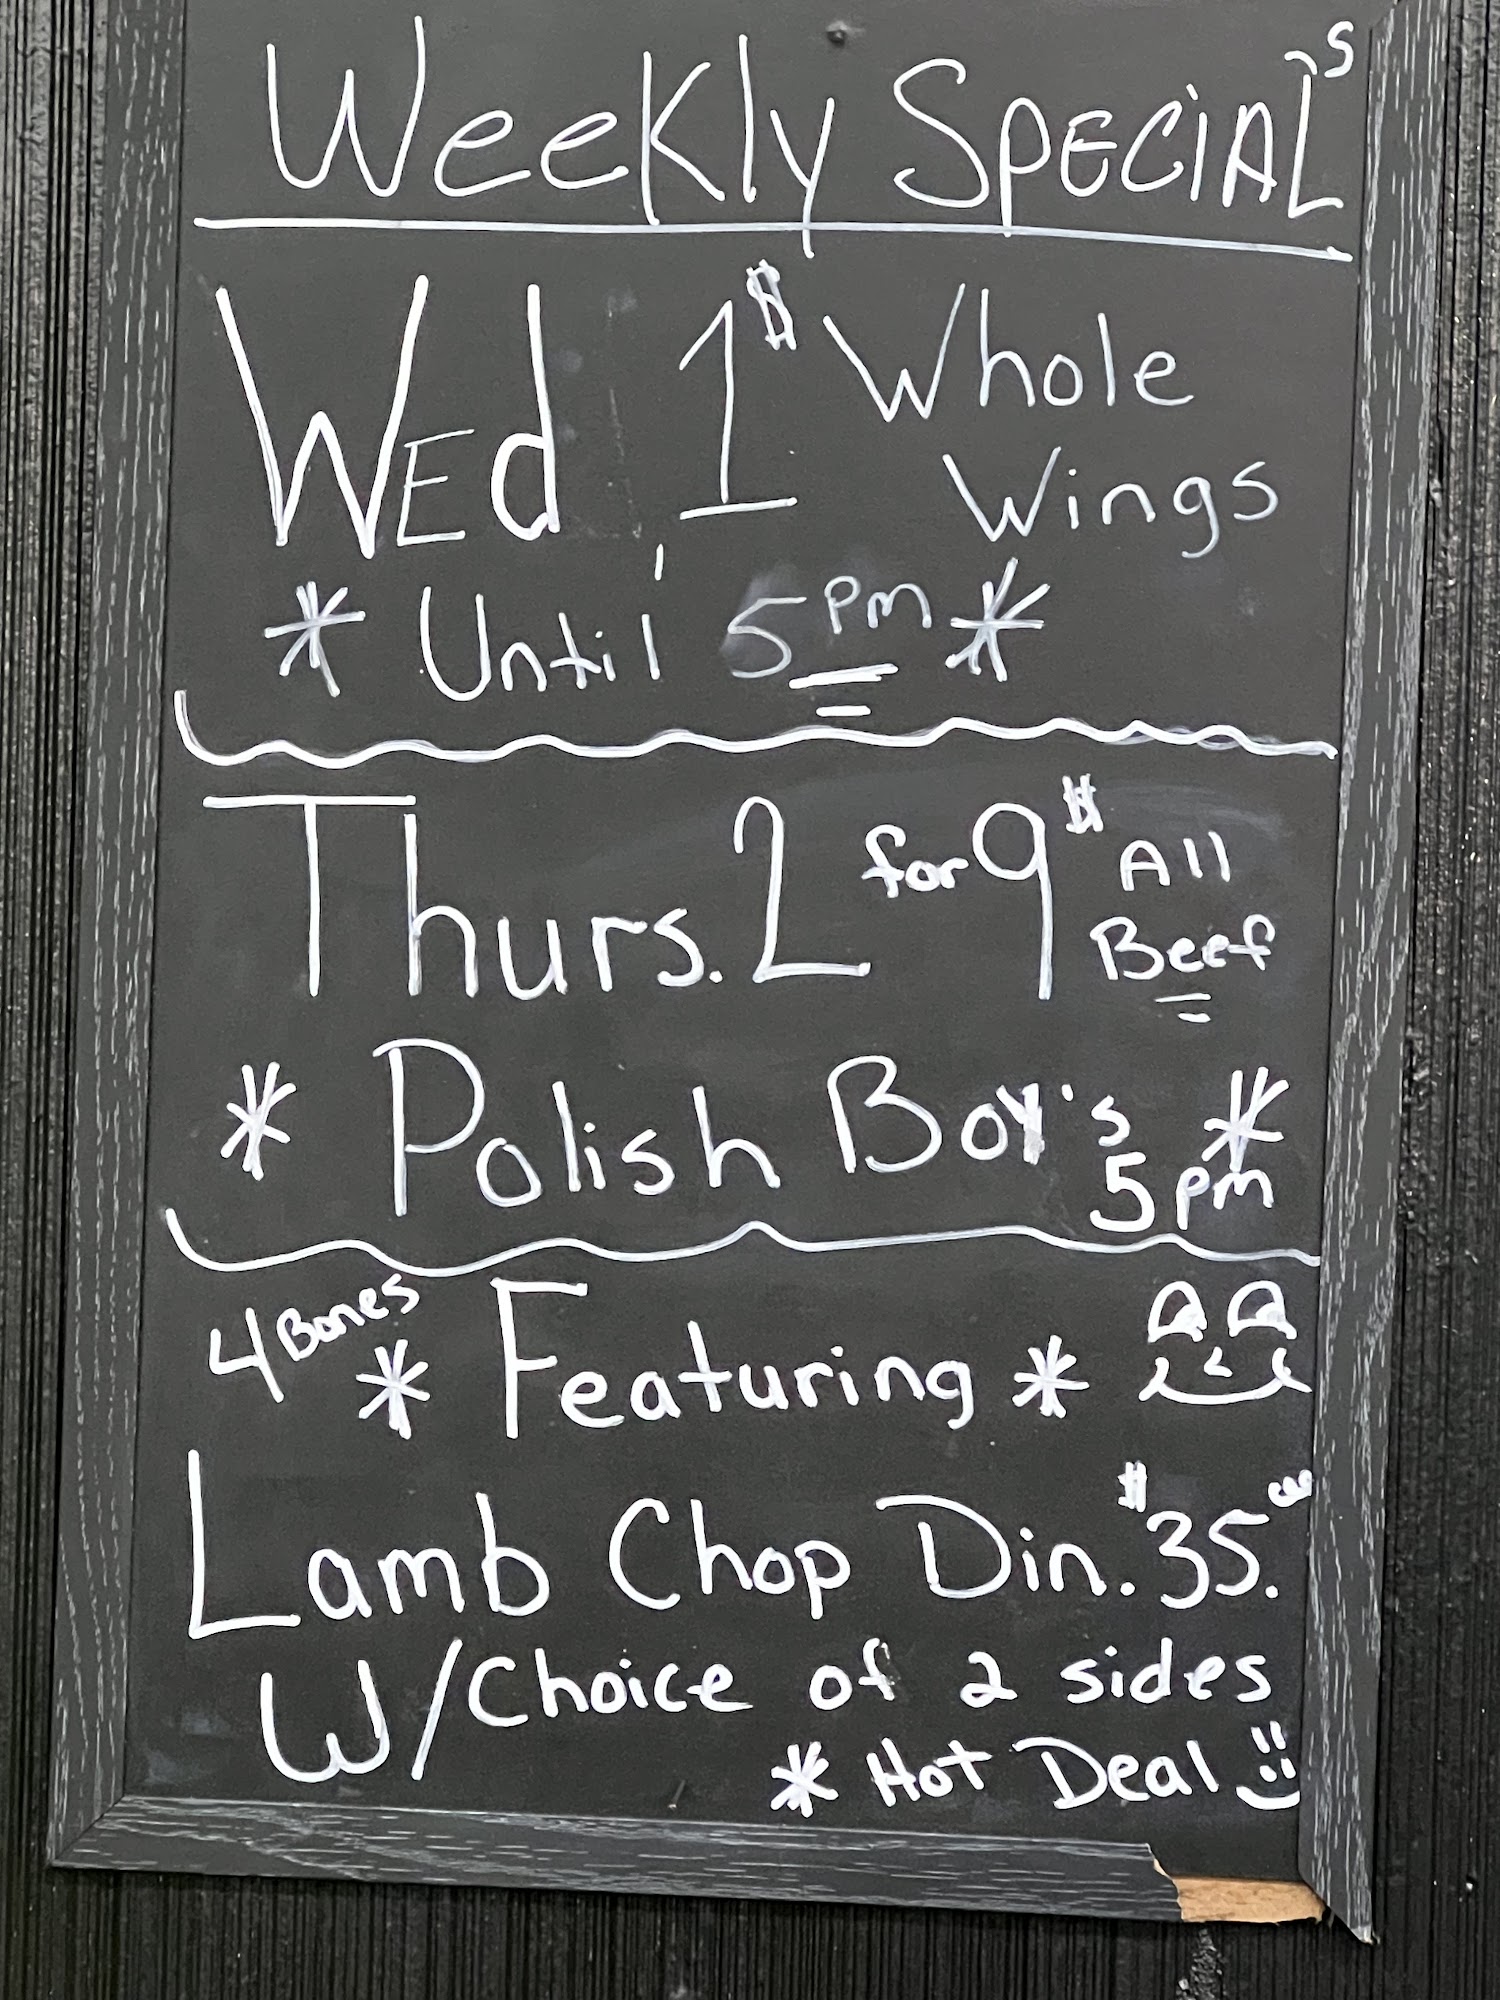 Weekly SPECIAL's
Wed, 1$ Whole
Wings
* Until 5pm *
Thurs. 2 for 9$ All
Beef
* Polish Boy's *
5pm
4 Bones
* Featuring *
Lamb Chop Din. $35.
W/Choice of 2 sides
* Hot Deal